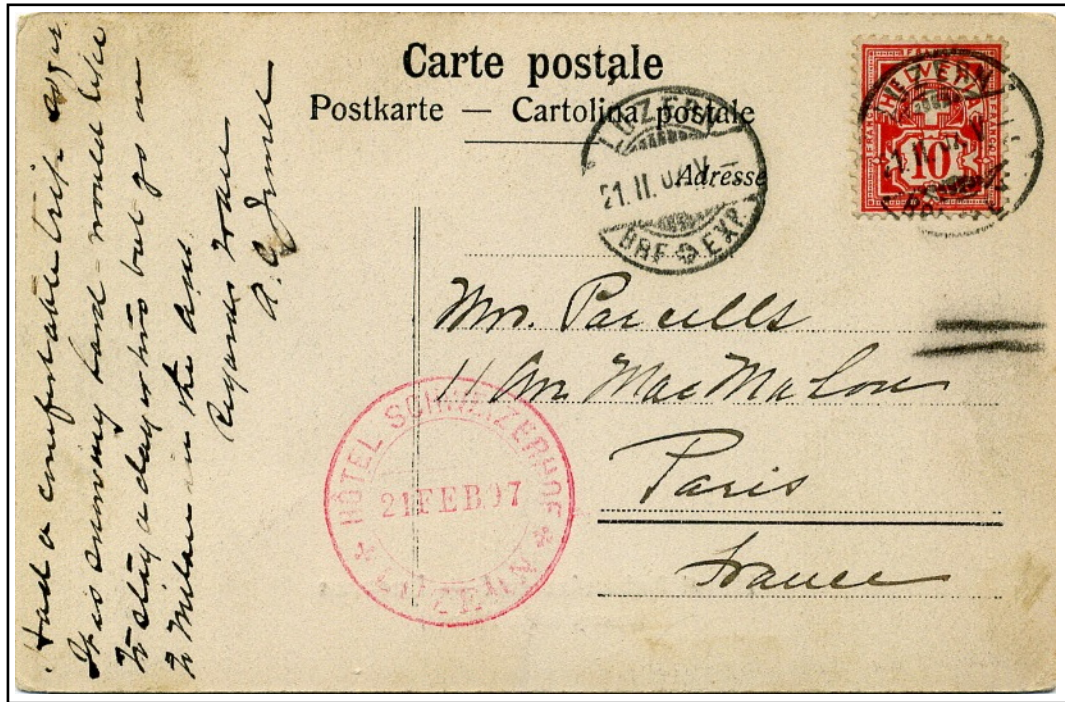 Carte postale
Postkarte — Cartolina postale
Adresse
HELVETIA
FRANCO
FRANCO
10
LUZERN
21.II.07.V
BRF EXP.
LUZERN
21.II.07.V
BRF
Mr. Parcells
11 Av. Mac Mahon
Paris
France
HÔTEL SCHWEIZERHOF
21 FEB.07
LUZERN
Had a comfortable trip
It is snowing hard - would like
to stay a day or two but go on
to Milan in the a.m.
Regards to all